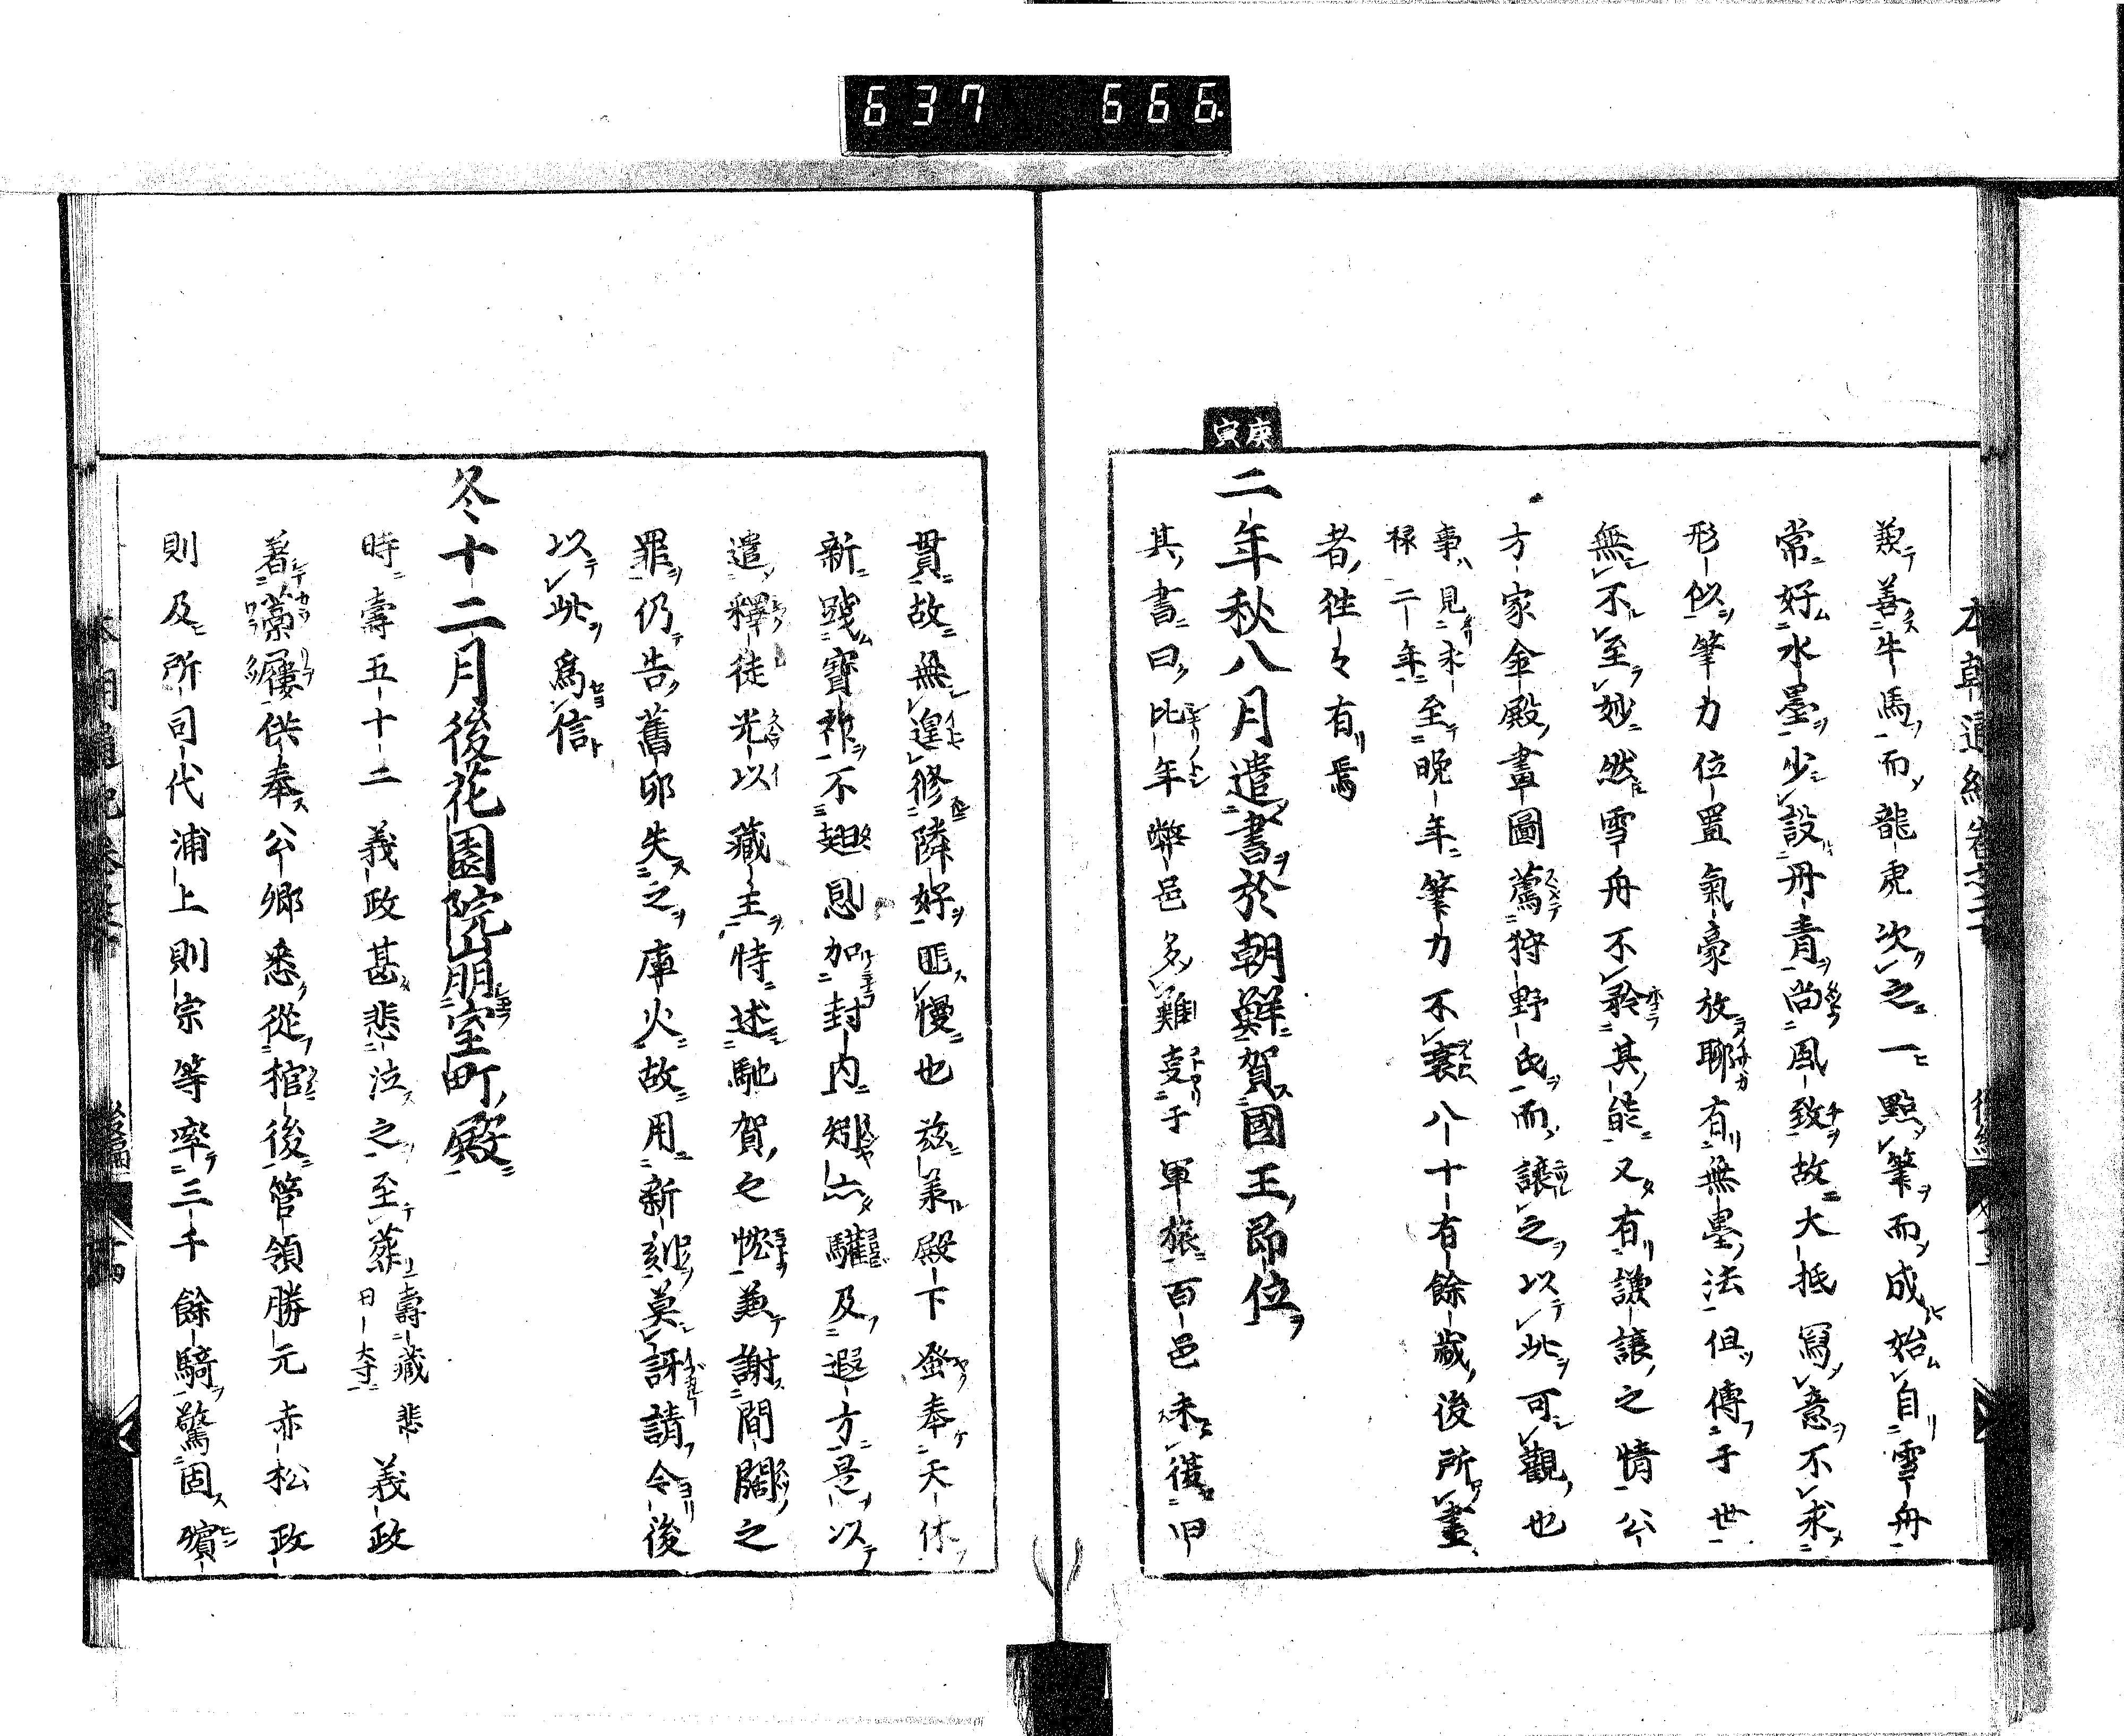 637 666
羙善牛馬而龍虎次之一點筆而成始自雪舟
常好水墨少設丹青尚風致故大抵冩意不求
形似筆力位置氣豪放聊有無墨法但傳于世
無不至妙然雪舟不矜其能又有謙讓之情公
方家金殿畫圖薦狩野氏而讓之以此可觀也
事見永
禄二年
至晩年筆力不衰八十有餘歳後所畫
者徃々有焉
庚寅
二年秋八月遣書於朝鮮賀國王即位
其書曰比年弊邑多難支于軍旅百邑未復旧
貫故無遑修隣好匪慢也兹羕殿下登奉天休
新踐寳祚不翅恩加封内矧亦驩及遐方是以
遣釋徒光以藏主特述馳賀之忱兼謝間闊之
罪仍告舊卯失之庫火故用新刻莫訝請令後
以此爲信
冬十二月後花園院崩室町殿
時壽五十二義政甚悲泣之至葬
壽藏
日大寸
悲義政
著藁屨供奉公卿悉從棺後管領勝元赤松政
則及所司代浦上則宗等率三千餘騎驚固殯